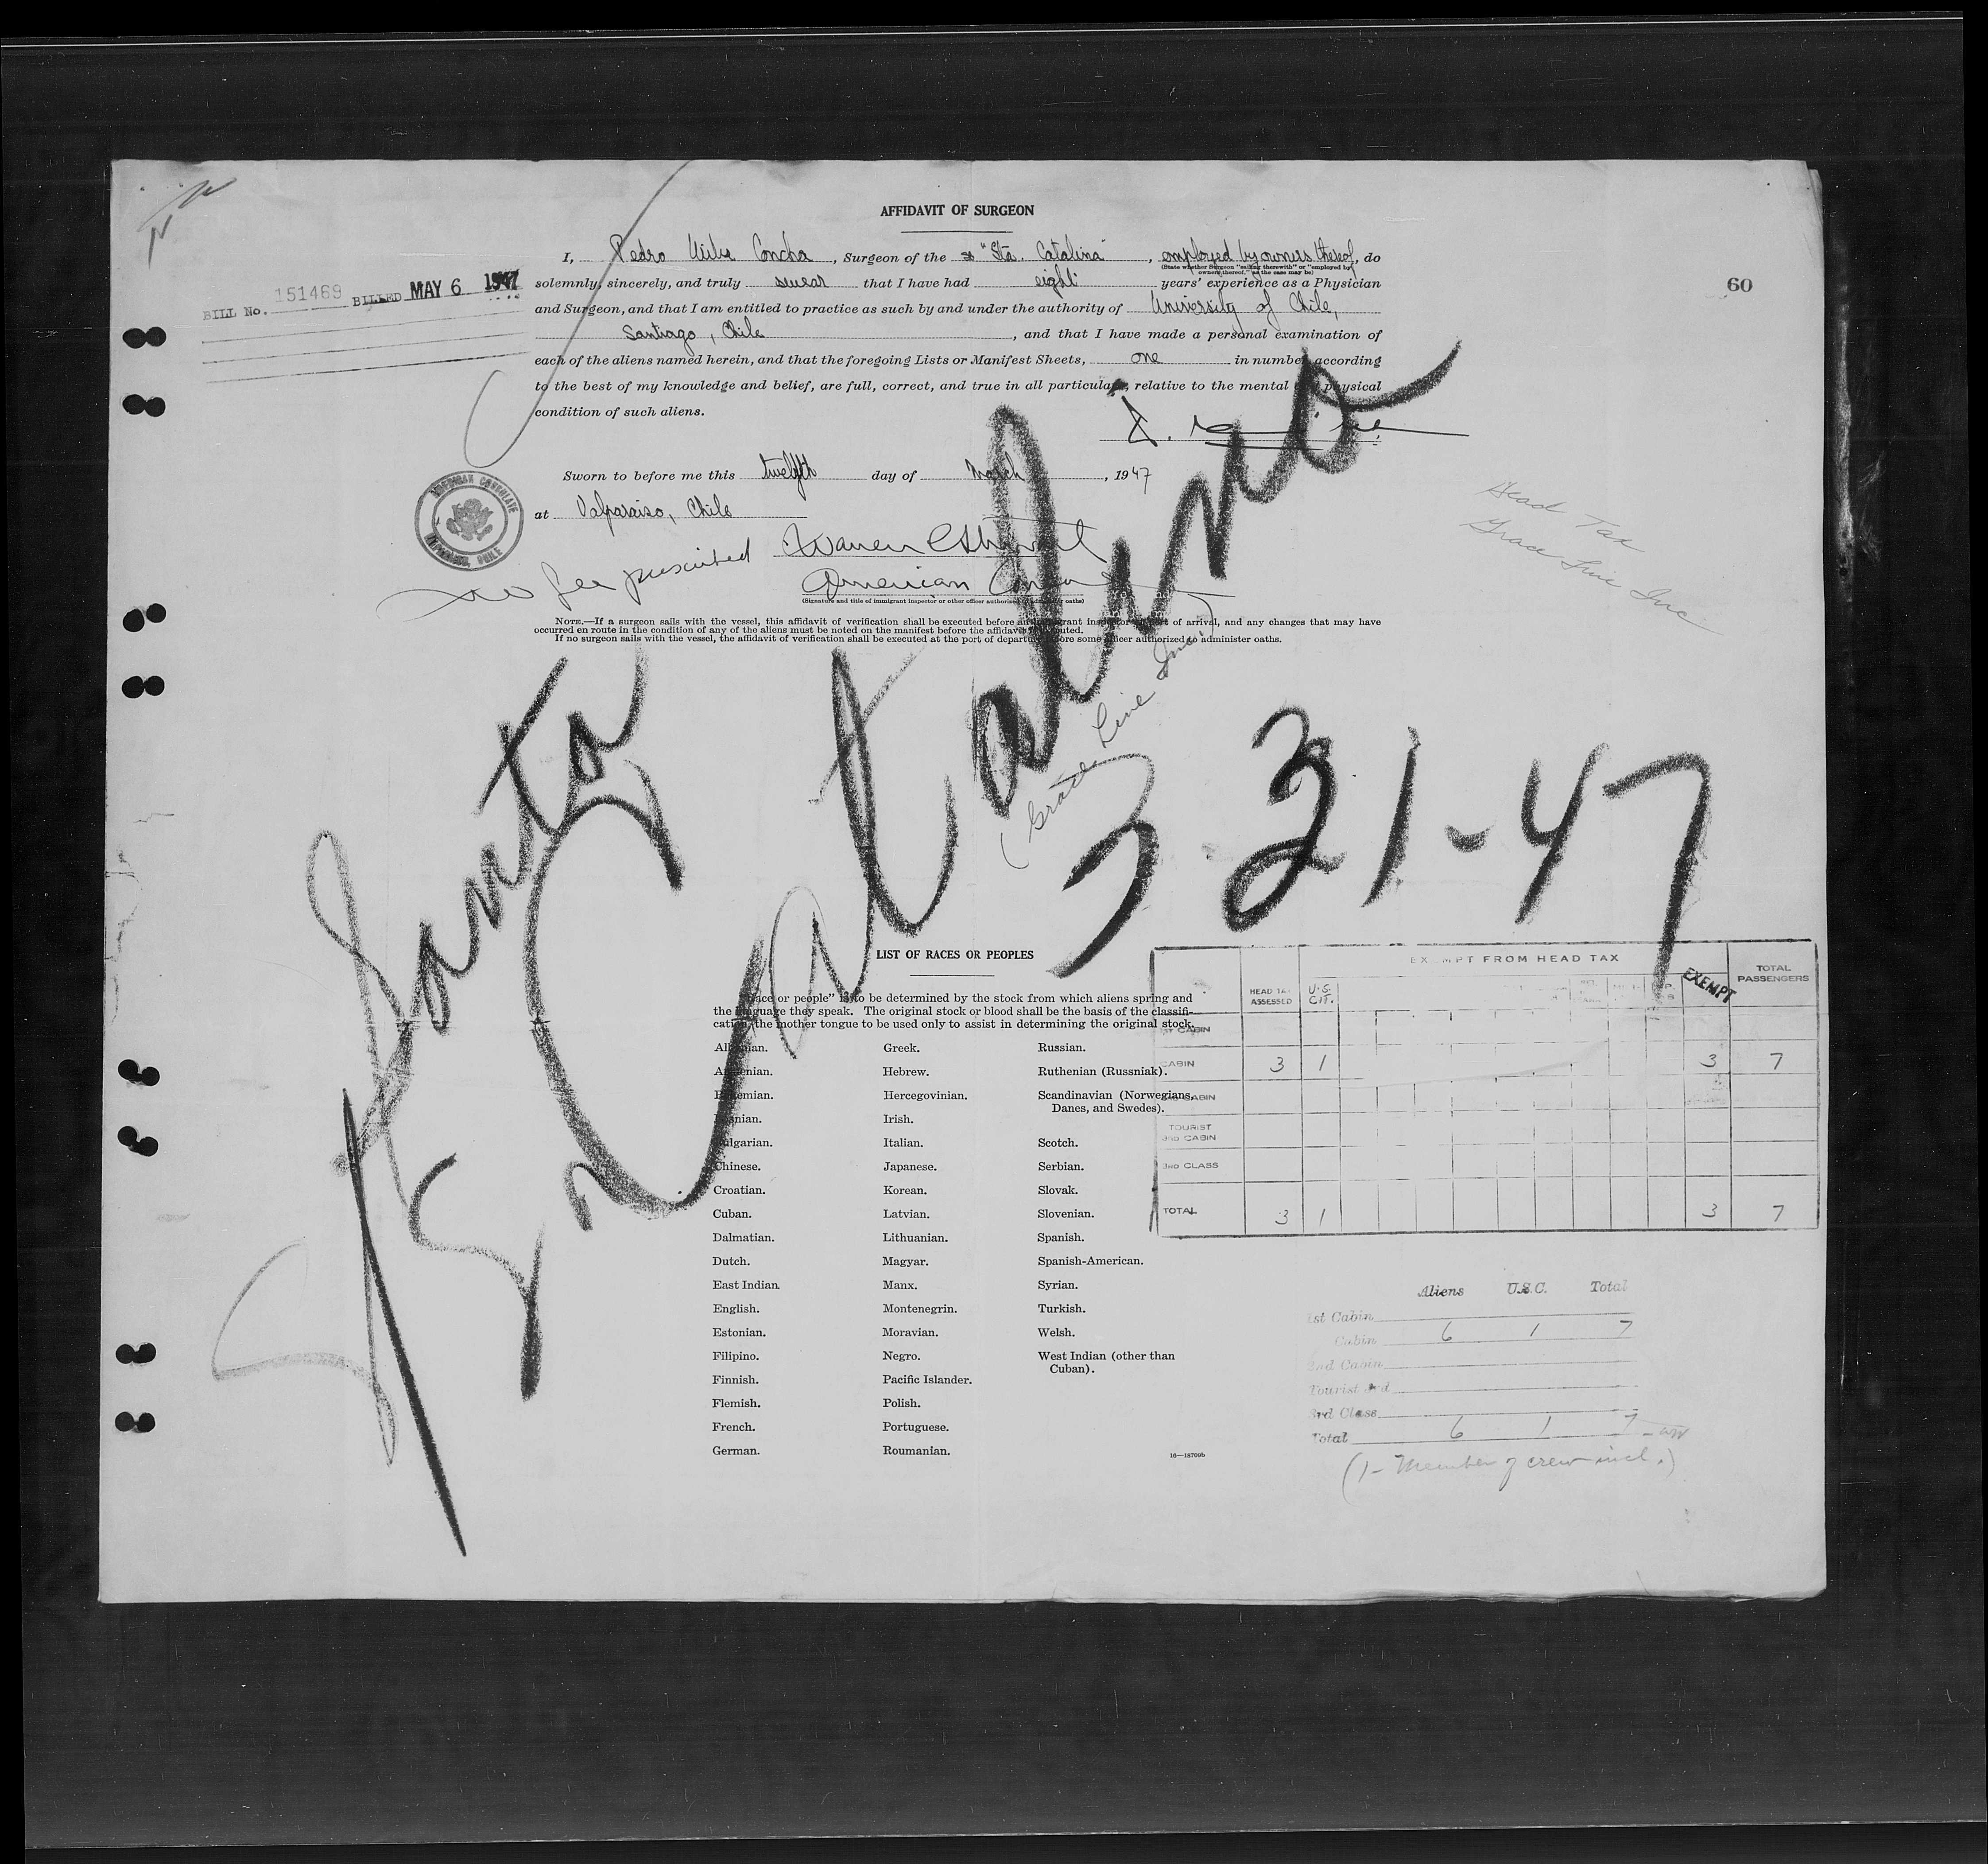 AFFIDAVIT OF SURGEON
I, Pedro Concha, Surgeon of the "Sta. Catalina", employed by owners thereof, do
(State whether Surgeon "sailing therewith" or "employed by owners thereof," as the case may be)
solemnly, sincerely, and truly swear that I have had eight years' experience as a Physician
and Surgeon, and that I am entitled to practice as such by and under the authority of University of Chile,
Santiago, Chile, and that I have made a personal examination of
each of the aliens named herein, and that the foregoing Lists or Manifest Sheets, one in number according
to the best of my knowledge and belief, are full, correct, and true in all particulars, relative to the mental physical
condition of such aliens.
BILL No. 151469 BILLED MAY 6 1947
60
Sworn to before me this twelfth day of March, 1947
at Valparaiso, Chile
AMERICAN CONSULATE
VALPARAISO, CHILE
No fee prescribed
Warren
American Consul
(Signature and title of immigrant inspector or other officer authorized to administer oaths)
Head Tax
Grace Line Inc
NOTE.—If a surgeon sails with the vessel, this affidavit of verification shall be executed before an immigrant inspector at port of arrival, and any changes that may have
occurred en route in the condition of any of the aliens must be noted on the manifest before the affidavit is executed.
If no surgeon sails with the vessel, the affidavit of verification shall be executed at the port of departure before some officer authorized to administer oaths.
Santa
Catalina
(Grace Line Inc.)
3 21-47
LIST OF RACES OR PEOPLES
"Race or people" is to be determined by the stock from which aliens spring and
the language they speak. The original stock or blood shall be the basis of the classifi-
cation, the mother tongue to be used only to assist in determining the original stock.
Albanian.
Armenian.
Bohemian.
Bosnian.
Bulgarian.
Chinese.
Croatian.
Cuban.
Dalmatian.
Dutch.
East Indian.
English.
Estonian.
Filipino.
Finnish.
Flemish.
French.
German.
Greek.
Hebrew.
Hercegovinian.
Irish.
Italian.
Japanese.
Korean.
Latvian.
Lithuanian.
Magyar.
Manx.
Montenegrin.
Moravian.
Negro.
Pacific Islander.
Polish.
Portuguese.
Roumanian.
Russian.
Ruthenian (Russniak).
Scandinavian (Norwegians,
Danes, and Swedes).
Scotch.
Serbian.
Slovak.
Slovenian.
Spanish.
Spanish-American.
Syrian.
Turkish.
Welsh.
West Indian (other than
Cuban).
16—18709b
EXEMPT FROM HEAD TAX
HEAD TAX ASSESSED U.S. CIT. EXEMPT TOTAL PASSENGERS
1ST CABIN
CABIN 3 1 3 7
2ND CABIN
TOURIST
3RD CABIN
3RD CLASS
TOTAL 3 1 3 7
Aliens U.S.C. Total
1st Cabin
Cabin 6 1 7
2nd Cabin
Tourist 3rd
3rd Class
Total 6 1 7
(1- Member of crew incl.)